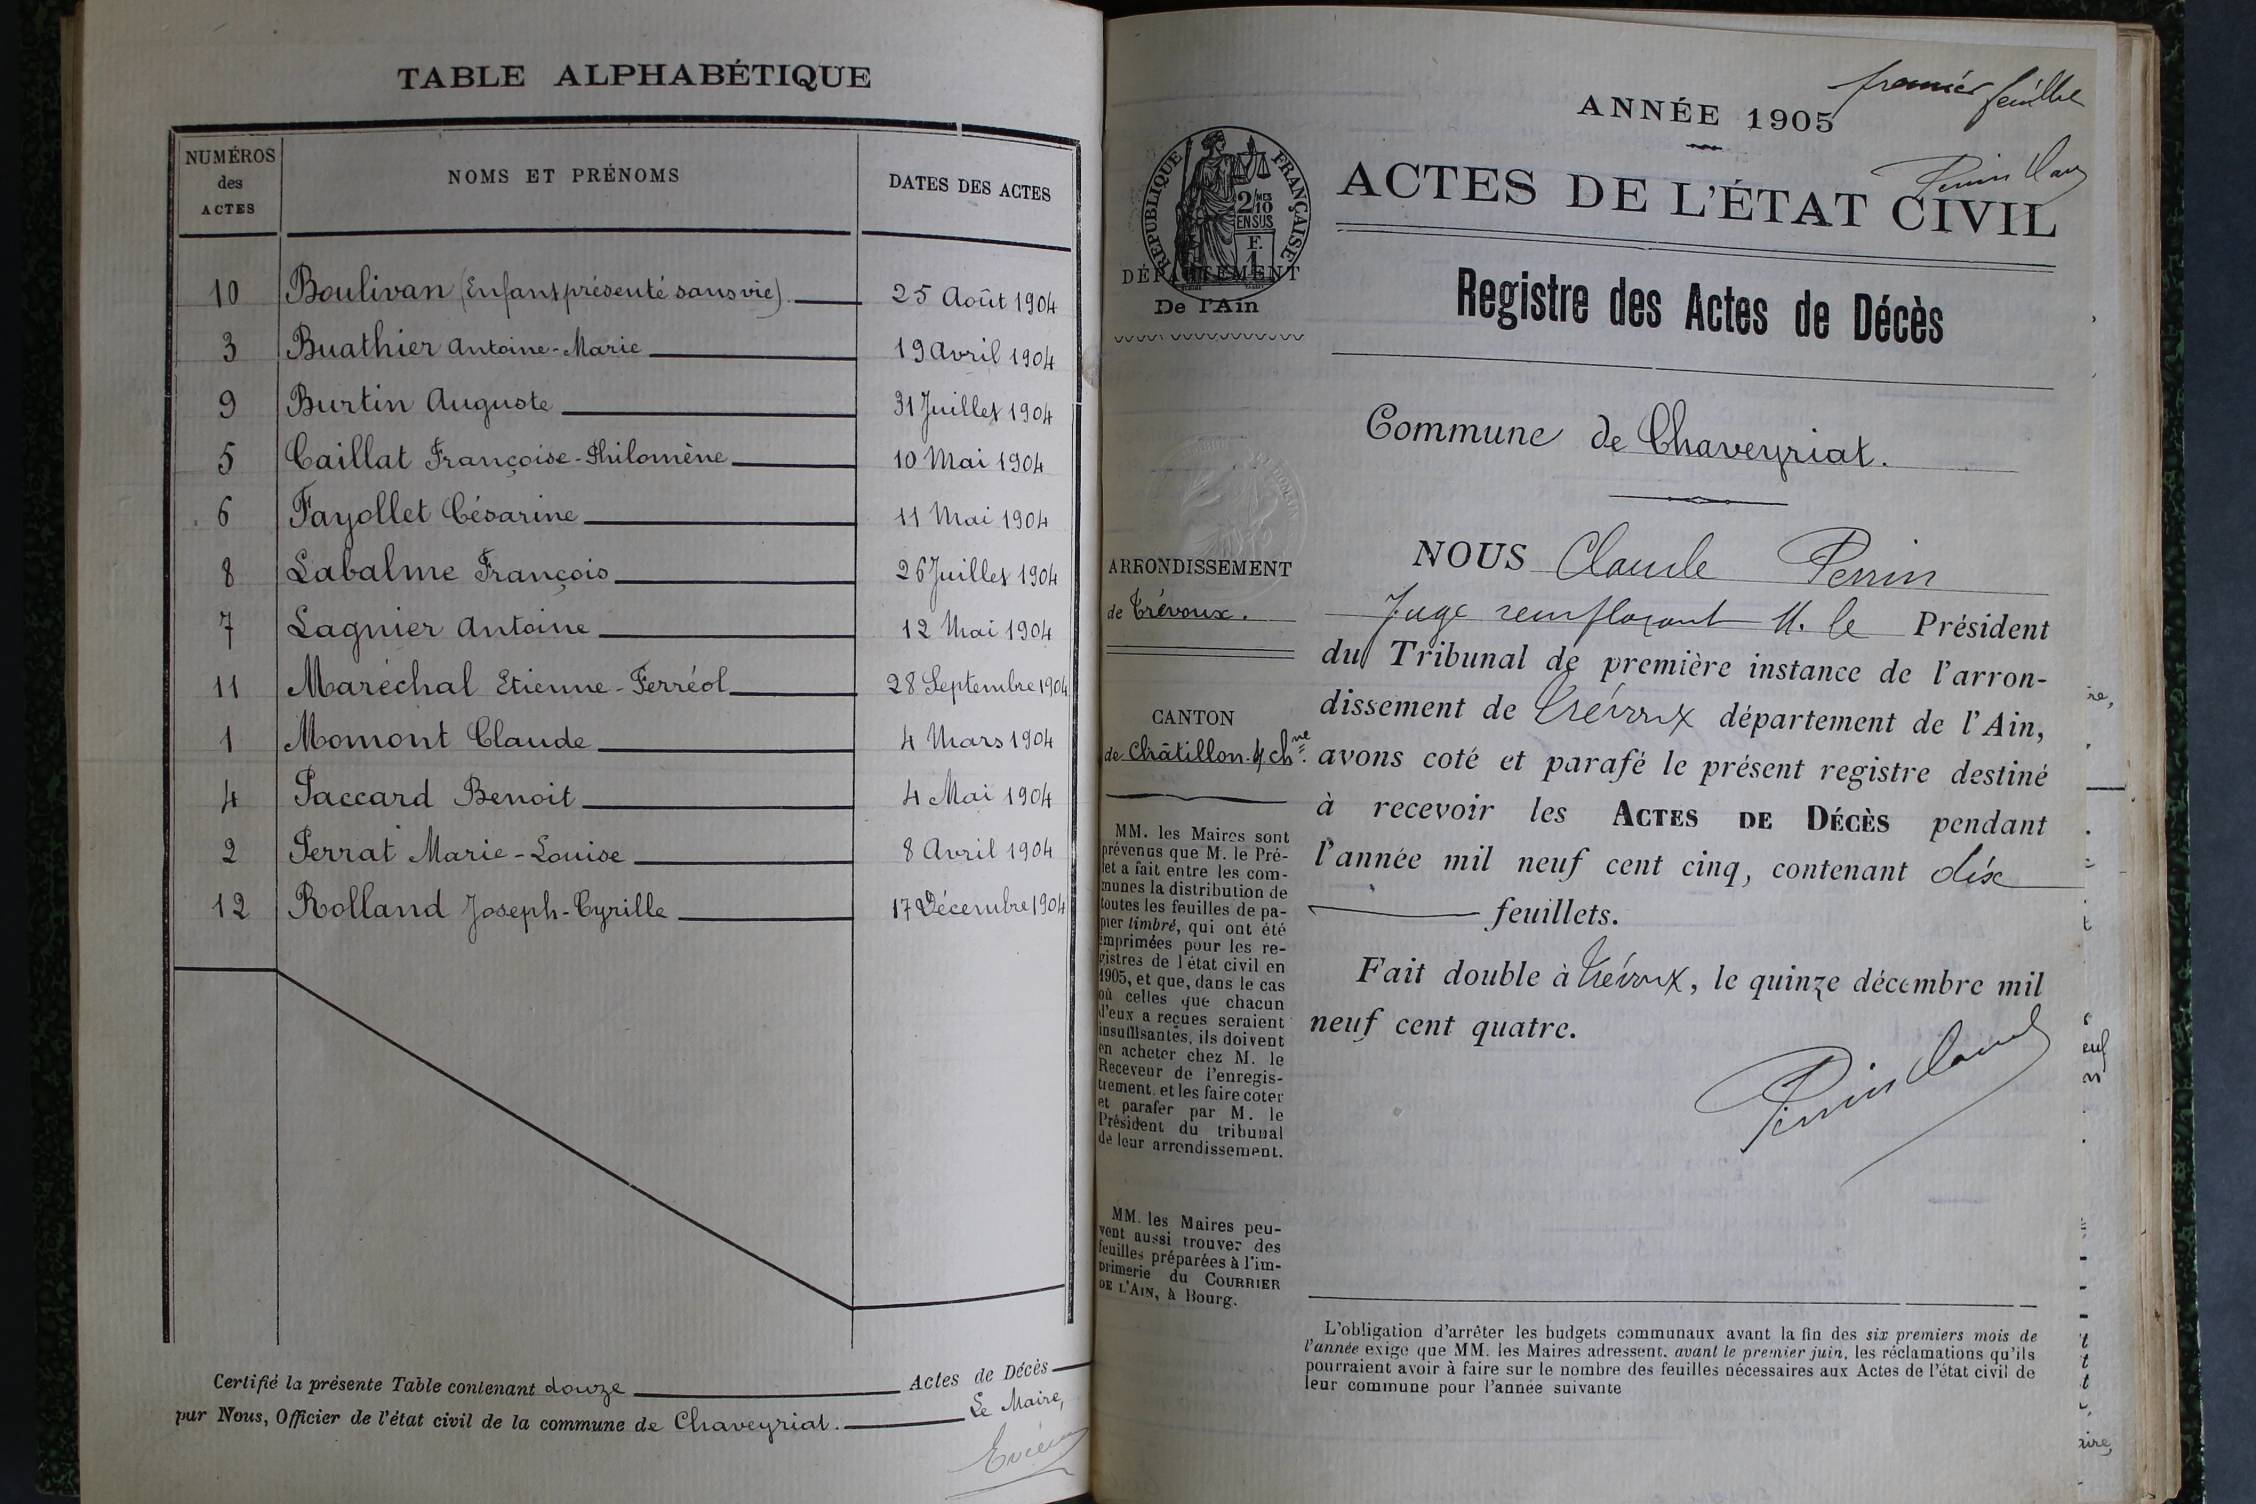 TABLE ALPHABÉTIQUE
NUMÉROS des ACTES NOMS ET PRÉNOMS DATES DES ACTES
10 Boulivan (Enfant présenté sans vie) 25 Août 1904
3 Buathier Antoine-Marie 19 Avril 1904
9 Burtin Auguste 31 Juillet 1904
5 Caillat Françoise-Philomène 10 Mai 1904
6 Fayollet Césarine 11 Mai 1904
8 Labalme François 26 Juillet 1904
7 Lagnier Antoine 12 Mai 1904
11 Maréchal Etienne-Ferréol 28 Septembre 1904
1 Momont Claude 4 Mars 1904
4 Paccard Benoit 4 Mai 1904
2 Perrat Marie-Louise 8 Avril 1904
12 Rolland Joseph-Cyrille 17 Décembre 1904
Certifié la présente Table contenant douze Actes de Décès
par Nous, Officier de l'état civil de la commune de Chaveyriat.
Le Maire,
premier feuillet
Perrin Claude
ANNÉE 1905
ACTES DE L'ÉTAT CIVIL
Registre des Actes de Décès
RÉPUBLIQUE FRANÇAISE
2/10MES
EN SUS
F.
1
DÉPARTEMENT
De l'Ain
Commune de Chaveyriat.
ARRONDISSEMENT
de Trévoux.
CANTON
de Châtillon s/ Chne.
MM. les Maires sont
prévenus que M. le Pré-
fet a fait entre les com-
munes la distribution de
toutes les feuilles de pa-
pier timbré, qui ont été
imprimées pour les re-
gistres de l'état civil en
1905, et que, dans le cas
où celles que chacun
d'eux a reçues seraient
insuffisantes, ils doivent
en acheter chez M. le
Receveur de l'enregis-
trement, et les faire coter
et parafer par M. le
Président du tribunal
de leur arrondissement.
MM. les Maires peu-
vent aussi trouver des
feuilles préparées à l'im-
primerie du COURRIER
DE L'AIN, à Bourg.
NOUS Claude Perrin
Juge remplaçant M. le Président
du Tribunal de première instance de l'arron-
dissement de Trévoux département de l'Ain,
avons coté et parafé le présent registre destiné
à recevoir les ACTES DE DÉCÈS pendant
l'année mil neuf cent cinq, contenant dix
feuillets.
Fait double à Trévoux, le quinze décembre mil
neuf cent quatre.
Perrin Claude
L'obligation d'arrêter les budgets communaux avant la fin des six premiers mois de
l'année exige que MM. les Maires adressent, avant le premier juin, les réclamations qu'ils
pourraient avoir à faire sur le nombre des feuilles nécessaires aux Actes de l'état civil de
leur commune pour l'année suivante